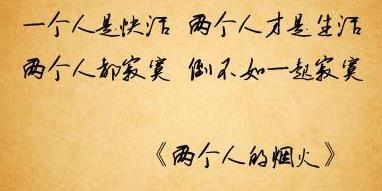 一个人是快活 两个人才是生活
两个人都寂寞 倒不如一起寂寞
《两个人的烟火》